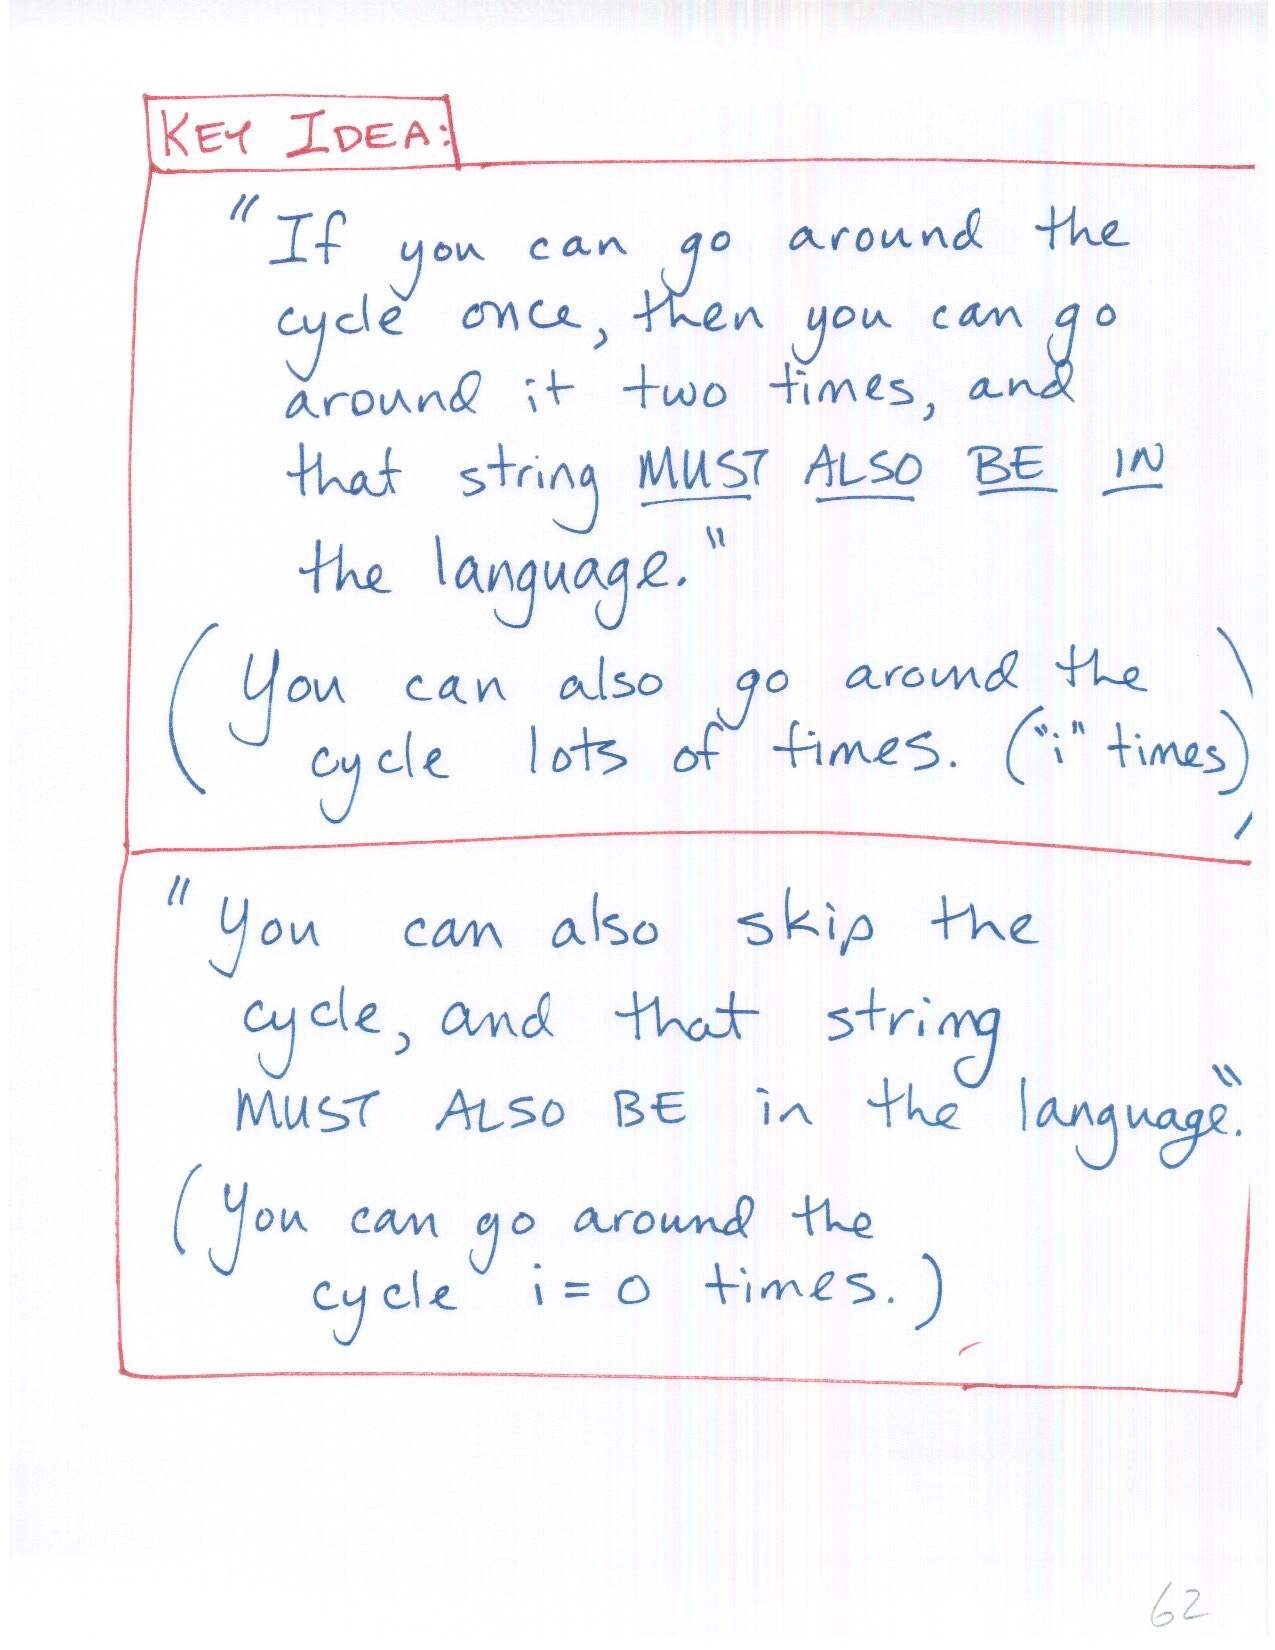 KEY IDEA:
"If you can go around the
cycle once, then you can go
around it two times, and
that string MUST ALSO BE IN
the language."
(You can also go around the
cycle lots of times. ("i" times)
"You can also skip the
cycle, and that string
MUST ALSO BE in the language."
(You can go around the
cycle i = 0 times.)
62